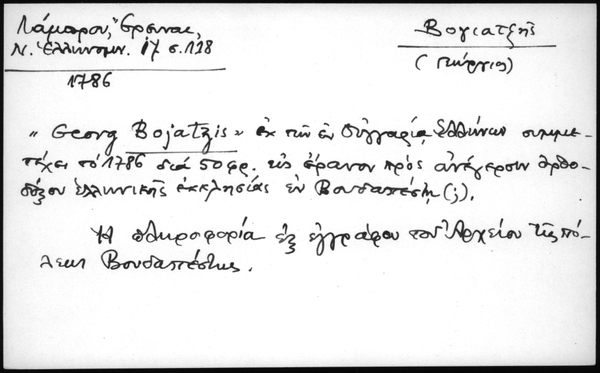 Λάμπρου, Έρευναι,
Ν. Ἑλληνομν. 17 σ. 118
1786
Βογιατζῆς
(Γεώργιος)
« Georg Bojatzis » ἐκ τῶν ἐν Οὑγγαρίᾳ Ἑλλήνων συμμε-
τέχει τό 1786 διά 50 φρ. εἰς ἔρανον πρός ἀνέγερσιν ὀρθο-
δόξου ἑλληνικῆς ἐκκλησίας ἐν Βουδαπέστῃ (;).
Ἡ πληροφορία ἐξ ἐγγράφου τοῦ Ἀρχείου τῆς πό-
λεως Βουδαπέστης.